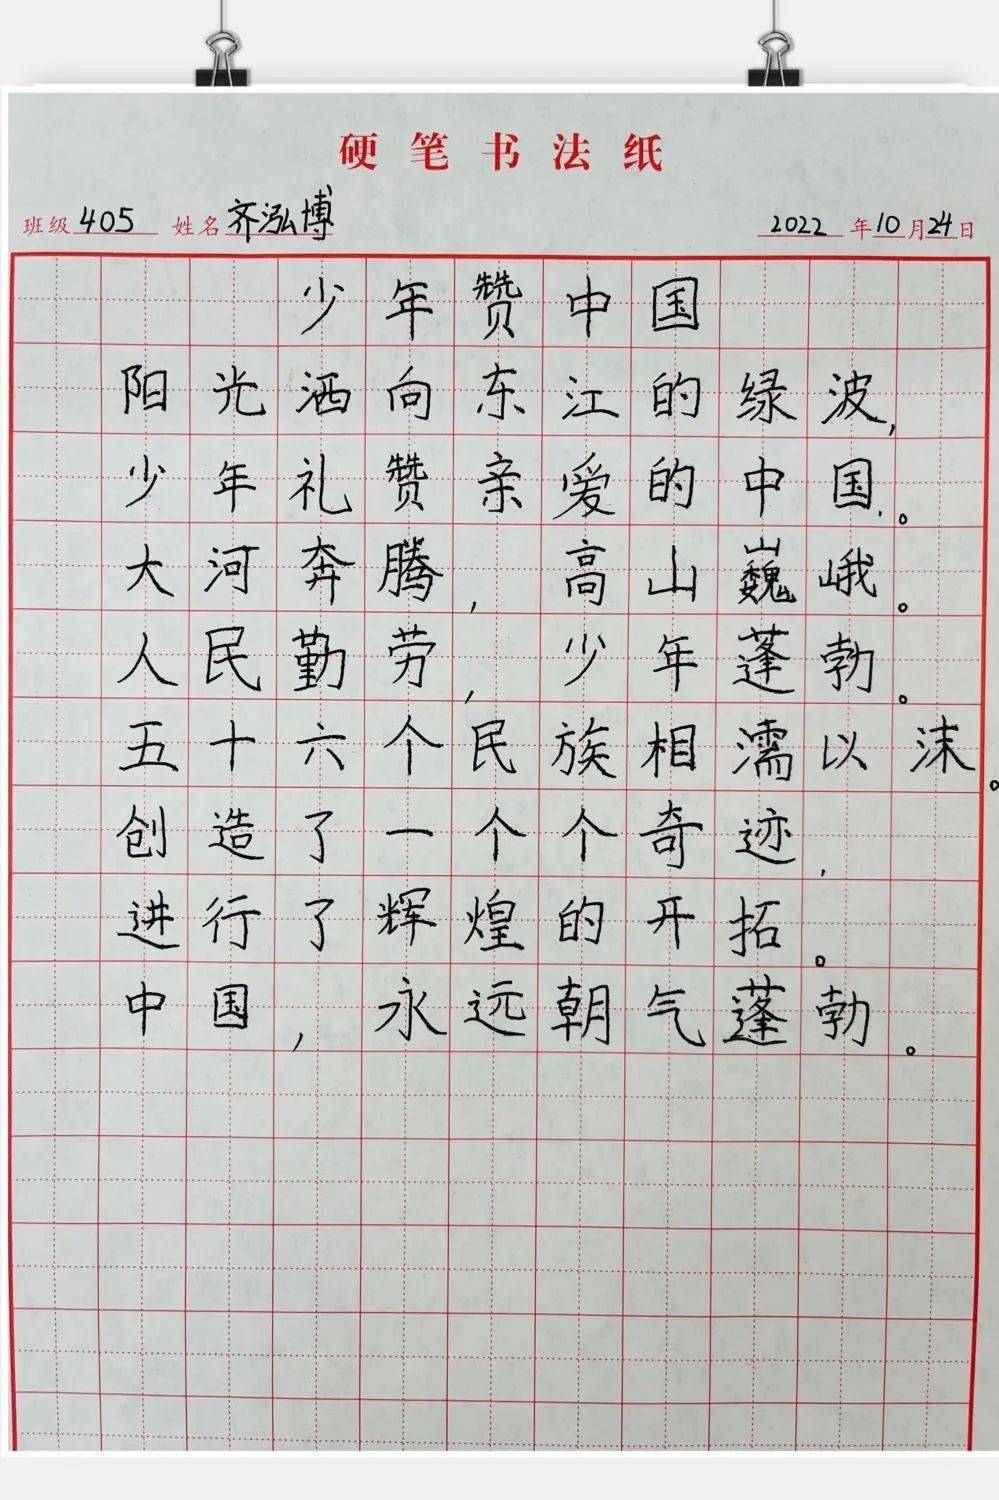 硬笔书法纸
班级 405 姓名 齐泓博 2022年10月24日
少年赞中国
阳光洒向东江的绿波,
少年礼赞亲爱的中国。
大河奔腾,高山巍峨。
人民勤劳,少年蓬勃。
五十六个民族相濡以沫。
创造了一个个奇迹,
进行了辉煌的开拓。
中国,永远朝气蓬勃。